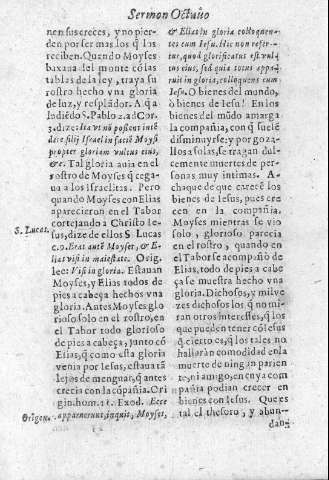 Sermon Octauo
nen sus creces, y no pier-
den por ser mas los q̃ los
reciben. Quando Moyses
baxaua del monte cõ las
tablas de la ley, traya su
rostro hecho vna gloria
de luz, y resplãdor. A q̃ a
ludiẽdo S. Pablo 2. ad Cor.
3. dize: Ita vt nõ possent intẽ
dere filij Israel in faciẽ Moysi
propter gloriam vultus eius,
&c. Tal gloria auia en el
rostro de Moyses q̃ cega-
ua a los Israelitas. Pero
quando Moyses con Elias
aparecieron en el Tabor
cortejando a Christo Ie-
sus, dize de ellos S. Lucas
S. Lucas.
c.9. Erat autẽ Moyses, & E-
lias visi in maiestate. Orig.
lee: Visi in gloria. Estauan
Moyses, y Elias todos de
pies a cabeça hechos vna
gloria. Antes Moyses glo
rioso solo en el rostro, en
el Tabor todo glorioso
de pies a cabeça, junto cõ
Elias, q̃ como esta gloria
venia por Iesus, estaua tã
lejos de menguar, q̃ antes
crecia con la cõpañia. Ori
gin. hom. 35. Exod. Ecce
Origen.
apparuerunt, inquit, Moyses,
& Elias in gloria colloquen-
tes cum Iesu. Hic non refer-
tur, quod glorificatus est vul-
tus eius, sed quia totus appa-
ruit in gloria, colloquens cum
Iesu. O bienes del mundo,
ò bienes de Iesu! En los
bienes del mũdo amarga
la compañia, con q̃ suelẽ
desminuyrse: y por goza-
llos a solas, se tragan dul-
cemente muertes de per-
sonas muy intimas. A-
chaque de que carecẽ los
bienes de Iesus, pues cre
cen en la compañia.
Moyses mientras se vio
solo, glorioso parecia
en el rostro, quando en
el Tabor se acompañò de
Elias, todo de pies a cabe
ça se muestra hecho vna
gloria. Dichosos, y mil ve
zes dichosos los q̃ no mi-
ran otros interesses, q̃ los
que pueden tener cõ Iesus
q̃ cierto es, q̃ los tales no
hallaràn comodidad en la
muerte de ningũ parien
te, ni amigo, en cuya com
pañia podian crecer en
bienes con Iesus. Que es
tal el thesoro, y abun-
dan-